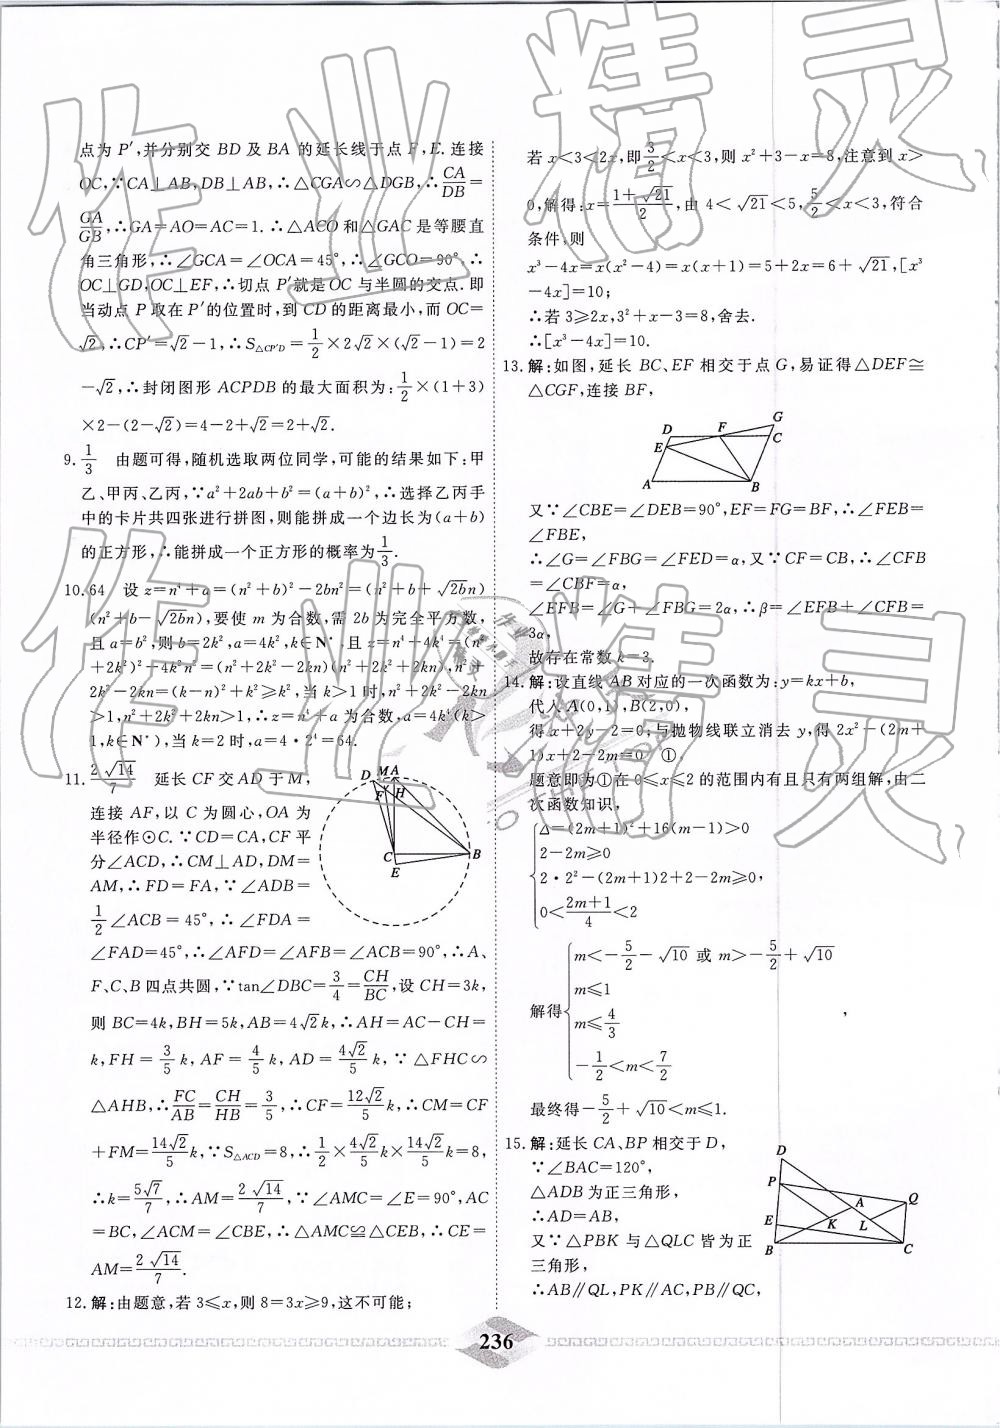 点为 P′,并分别交 BD 及 BA 的延长线于点 F,E.连接
OC,∵CA⊥AB,DB⊥AB,∴△CGA∽△DGB,∴CA/DB=
GA/GB,∴GA=AO=AC=1.∴△ACO 和△GAC 是等腰直
角三角形,∴∠GCA=∠OCA=45°,∴∠GCO=90°,∴
OC⊥GD,OC⊥EF,∴切点 P′就是 OC 与半圆的交点.即
当动点 P 取在 P′的位置时,到 CD 的距离最小,而 OC=
√2,∴CP′=√2-1,∴S△CP′D=1/2×2√2×(√2-1)=2
-√2,∴封闭图形 ACPDB 的最大面积为:1/2×(1+3)
×2-(2-√2)=4-2+√2=2+√2.
9. 1/3 由题可得,随机选取两位同学,可能的结果如下:甲
乙、甲丙、乙丙,∵a²+2ab+b²=(a+b)²,∴选择乙丙手
中的卡片共四张进行拼图,则能拼成一个边长为(a+b)
的正方形,∴能拼成一个正方形的概率为1/3.
10.64 设 z=n⁴+a=(n²+b)²-2bn²=(n²+b+√2bn)
(n²+b-√2bn),要使 m 为合数,需 2b 为完全平方数,
且 a=b²,则 b=2k²,a=4k²,k∈N*,且 z=n⁴-4k⁴=(n²
+2k²)²-4k²n²=(n²+2k²-2kn)(n²+2k²+2kn),n²+
2k²-2kn=(k-n)²+k²≥k²,当 k>1 时,n²+2k²-2kn
>1,n²+2k²+2kn>1,∴z=n⁴+a 为合数,a=4k⁴(k>
1,k∈N*),当 k=2 时,a=4·2⁴=64.
11. 2√14/7 延长 CF 交 AD 于 M,
连接 AF,以 C 为圆心,OA 为
半径作⊙C.∵CD=CA,CF 平
分∠ACD,∴CM⊥AD,DM=
AM,∴FD=FA,∵∠ADB=
1/2∠ACB=45°,∴∠FDA=
∠FAD=45°,∴∠AFD=∠AFB=∠ACB=90°,∴A、
F、C、B 四点共圆,∵tan∠DBC=3/4=CH/BC,设 CH=3k,
则 BC=4k,BH=5k,AB=4√2k,∴AH=AC-CH=
k,FH=3/5k,AF=4/5k,AD=4√2/5k,∵△FHC∽
△AHB,∴FC/AB=CH/HB=3/5,∴CF=12√2/5k,∴CM=CF
+FM=14√2/5k,∵S△ACD=8,∴1/2×4√2/5k×14√2/5k=8,
∴k=5√7/7,∴AM=2√14/7,∵∠AMC=∠E=90°,AC
=BC,∠ACM=∠CBE,∴△AMC≌△CEB,∴CE=
AM=2√14/7.
12.解:由题意,若 3≤x,则 8=3x≥9,这不可能;
若 x<3<2x,即3/2<x<3,则 x²+3-x=8,注意到 x>
0,解得:x=1+√21/2,由 4<√21<5,5/2<x<3,符合
条件,则
x³-4x=x(x²-4)=x(x+1)=5+2x=6+√21,[x³
-4x]=10;
∴若 3≥2x,3²+x-3=8,舍去.
∴[x³-4x]=10.
13.解:如图,延长 BC、EF 相交于点 G,易证得△DEF≌
△CGF,连接 BF,
D F G
E C
A B
又∵∠CBE=∠DEB=90°,EF=FG=BF,∴∠FEB=
∠FBE,
∴∠G=∠FBG=∠FED=α,又∵CF=CB,∴∠CFB
=∠CBF=α,
∠EFB=∠G+∠FBG=2α,∴β=∠EFB+∠CFB=
3α,
故存在常数 k=3.
14.解:设直线 AB 对应的一次函数为:y=kx+b,
代入 A(0,1),B(2,0),
得 x+2y-2=0;与抛物线联立消去 y,得 2x²-(2m+
1)x+2-2m=0 ①
题意即为①在 0≤x≤2 的范围内有且只有两组解,由二
次函数知识,
Δ=(2m+1)²+16(m-1)>0
2-2m≥0
2·2²-(2m+1)2+2-2m≥0,
0<2m+1/4<2
m<-5/2-√10 或 m>-5/2+√10
m≤1
解得 m≤4/3 ,
-1/2<m<7/2
最终得-5/2+√10<m≤1.
15.解:延长 CA、BP 相交于 D,
∵∠BAC=120°,
△ADB 为正三角形,
∴AD=AB,
又∵△PBK 与△QLC 皆为正
三角形,
∴AB∥QL,PK∥AC,PB∥QC,
D M A
F H
C B
E
D
P Q
A
E K L
B C
236
作业精灵
作业精灵